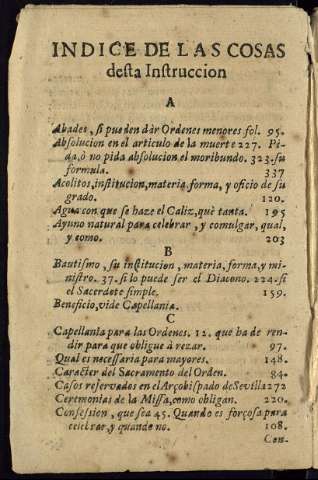 INDICE DE LAS COSAS
desta Instruccion
A
Abades, si pueden dàr Ordenes menores fol. 95.
Absolucion en el articulo de la muerte 227. Pi-
da, ò no pida absolucion el moribundo. 323. su
formula. 337
Acolitos, institucion, materia, forma, y oficio de su
grado. 120.
Agua con que se haze el Caliz, què tanta. 195
Ayuno natural para celebrar, y comulgar, qual,
y como. 203
B
Bautismo, su institucion, materia, forma, y mi-
nistro. 37. si lo puede ser el Diacono. 224. si
el Sacerdote simple. 159.
Beneficio, vide Capellania.
C
Capellania para las Ordenes. 12. que ha de ren-
dir para que obligue à rezar. 97.
Qual es necessaria para mayores. 148.
Caracter del Sacramento del Orden. 84.
Casos reservados en el Arçobispado de Sevilla 272
Ceremonias de la Missa, como obligan. 220.
Confession, que sea 45. Quando es forçosa para
celebrar, y quando no. 108.
Con-